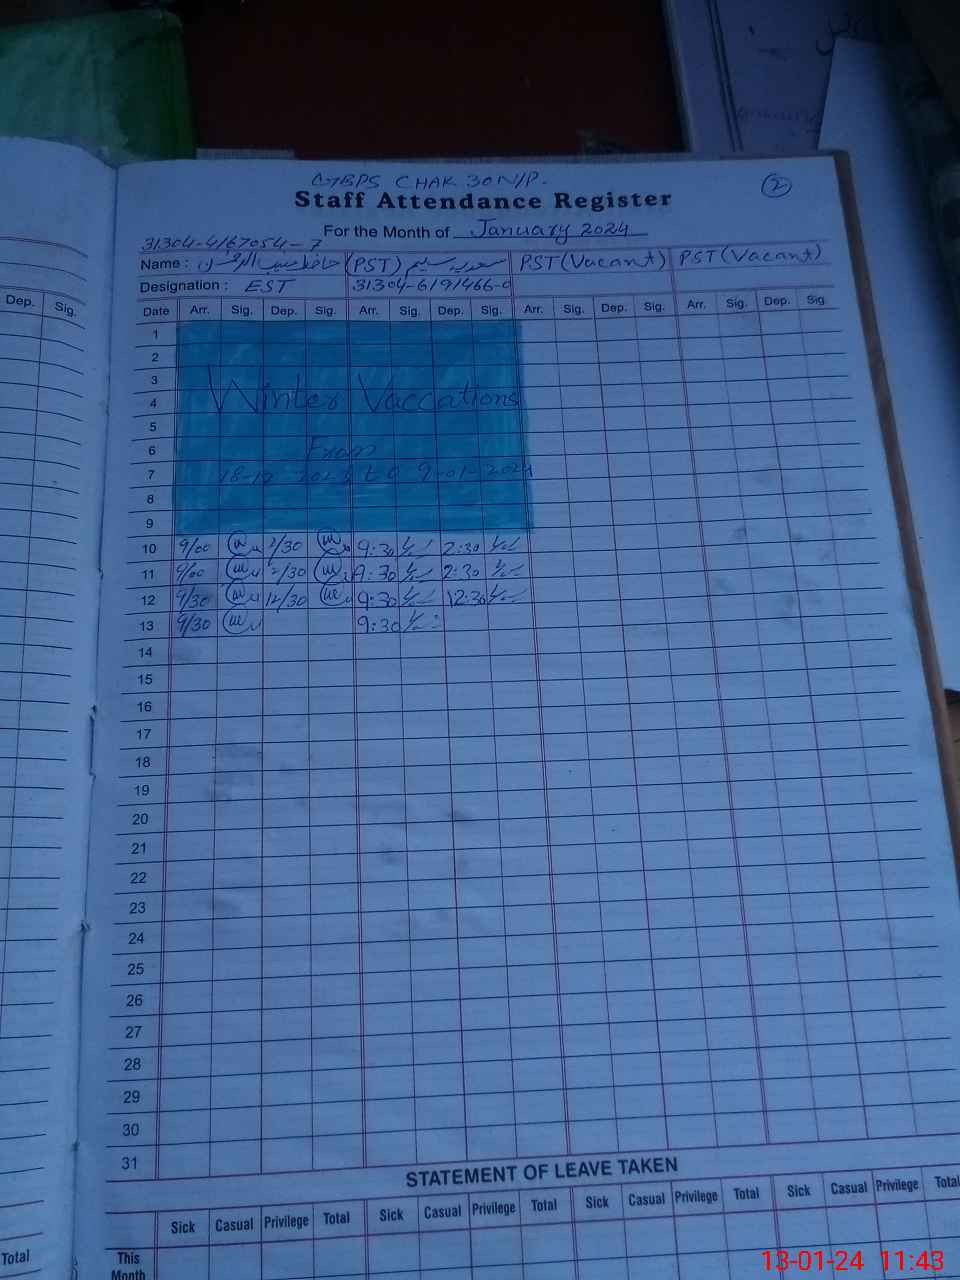 GBPS CHAK 30 N/P.
2
Staff Attendance Register
For the Month of January 2024
31304-4167054-7
Name : حافظ حبیب الرحمٰن (PST) سعدیہ سلیم PST (Vacant) PST (Vacant)
Designation : EST 31304-6191466-0
Dep. Sig.
Date Arr. Sig. Dep. Sig. Arr. Sig. Dep. Sig. Arr. Sig. Dep. Sig. Arr. Sig. Dep. Sig.
1
2
3
Winter Vaccations
4
5
6 From
7 18-12-2023 to 9-01-2024
8
9
10 9/00 2/30 9:30 2:30
11 9/00 2/30 9:30 2:30
12 9/30 12/30 9:30 12:30
13 9/30 9:30
14
15
16
17
18
19
20
21
22
23
24
25
26
27
28
29
30
31
STATEMENT OF LEAVE TAKEN
Sick Casual Privilege Total Sick Casual Privilege Total Sick Casual Privilege Total Sick Casual Privilege Total
Total
This
Month
13-01-24 11:43